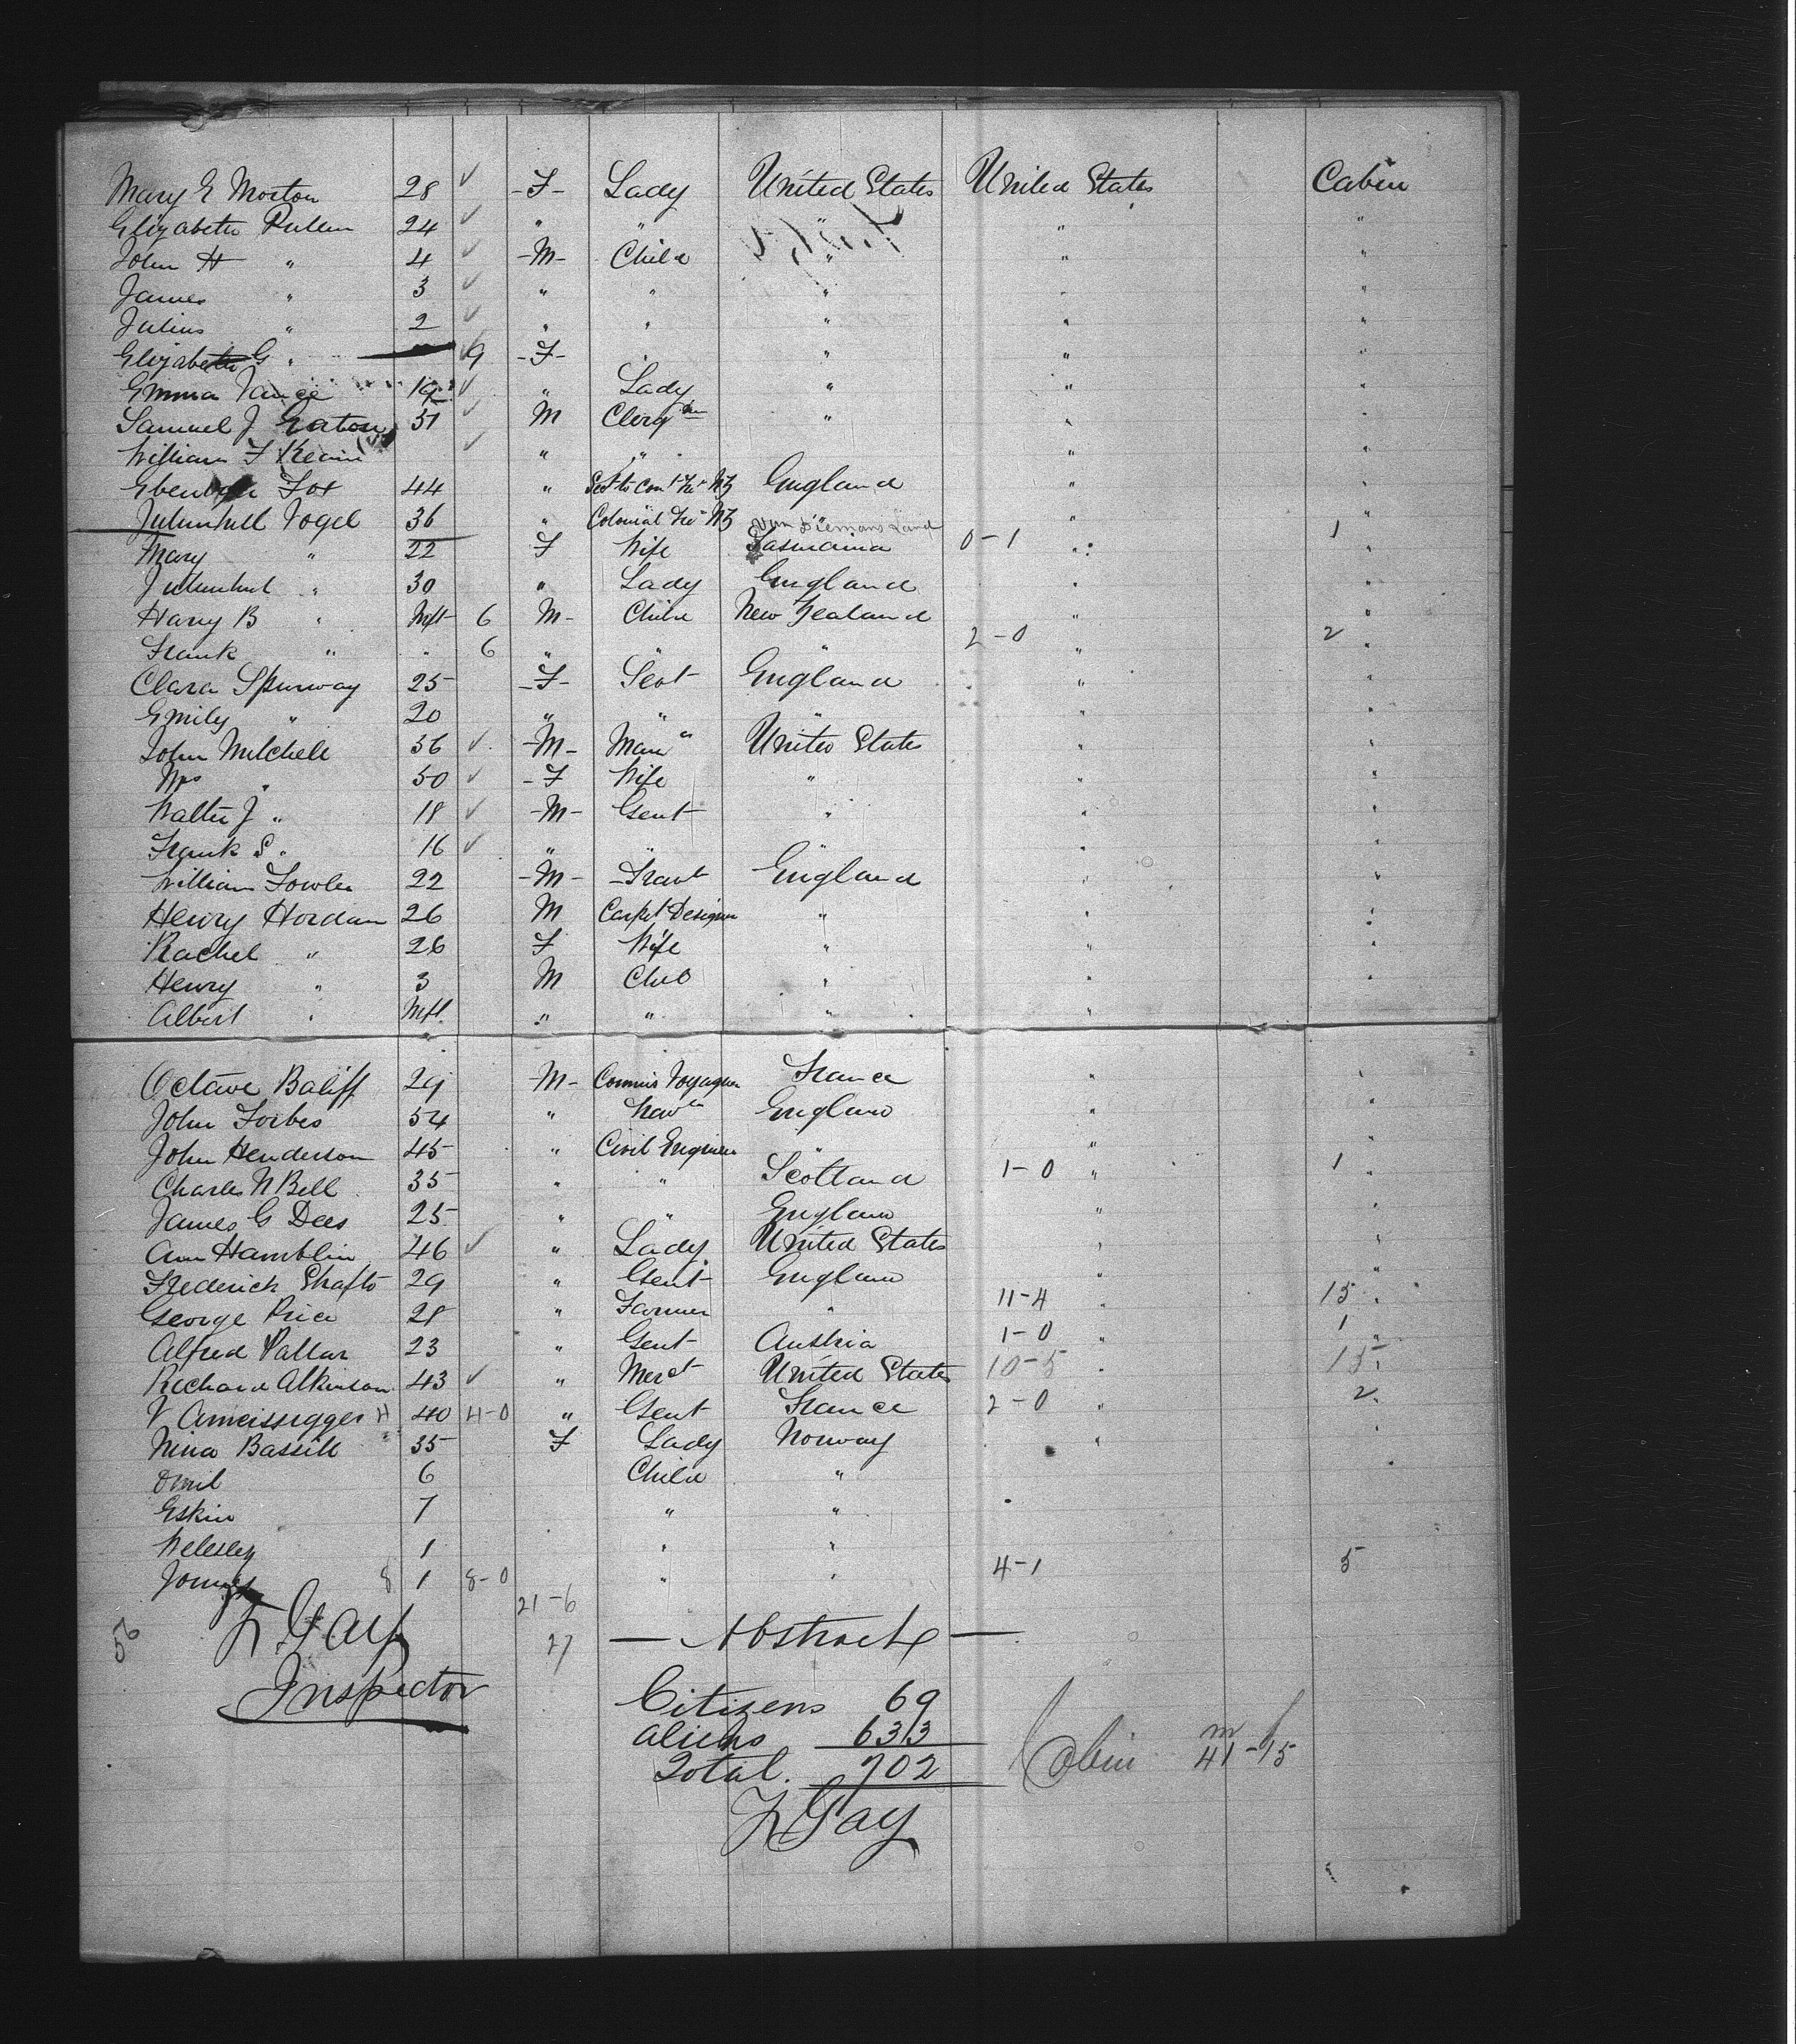 Mary E Morton 28 ✓ -F- Lady United States United States Cabin
Elizabeth Pullen 24 ✓ " " " " "
John H " 4 ✓ -M- Child " " "
James " 3 ✓ " " " " "
Julius " 2 ✓ " " " " "
Elizabeth G " 9 -F- " " "
Emma Vance 19 ✓ " Lady " " "
Samuel J Eaton 51 ✓ M Clergmn " " "
William F ✓ " " " "
Fox 44 " England " "
Vogel 36 " Colonial Tr NZ " " "
Van Diemans Land
Mary " 22 F Wife Tasmania 0-1 " 1 "
" 30 " Lady England " "
Harry B " Inft 6 M- Child New Zealand " "
Frank " " 6 " " " 2-0 " 2 "
Clara Spurway 25 -F- Sevt England " "
Emily " 20 " " " " "
John Mitchell 56 ✓ -M- Man United States " "
Mrs " 50 ✓ -F Wife " " "
Walter J " 18 ✓ -M- Gent " " "
Frank S " 16 ✓ " " " " "
William Fowler 22 -M- England " "
Henry Hordam 26 M Carpet Designer " " "
Rachel " 26 F Wife " " "
Henry " 3 M Chld " " "
Albert " Inft " " " "
Octave Baliff 29 -M- Commis Voyageur France " "
John Forbes 54 " England " "
John Henderson 45 " Civil Engineer " " "
Charles N Bell 35 " " Scotland 1-0 " 1 "
James G Dees 25 " " England " "
Ann Hamblin 46 ✓ " Lady United States " "
Frederick Shafto 29 " Gent England " "
George Price 28 " Farmer " 11-4 " 15 "
Alfred Pallar 23 " Gent Austria 1-0 " 1 "
Richard Atkinson 43 ✓ " Merct United States 10-5 " 15 "
V 4 40 4-0 " Gent France 2-0 " 2 "
Nina Bassill 35 F Lady Norway " "
Omil 6 Child "
Eskin 7 " "
Welesley 1 " "
8 1 8-0 " " 4-1 5
21-6
56 Z Gay 27 — Abstract —
Inspector
Citizens 69
Aliens 633
Total. 702
Cabin m 41 - f 15
Z Gay